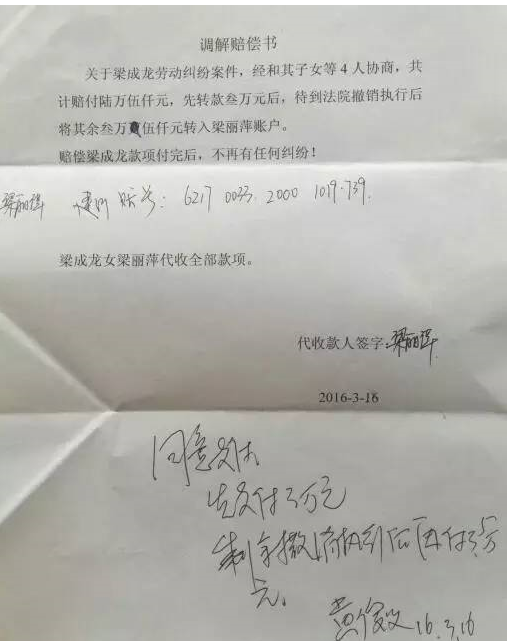 调解赔偿书
关于梁成龙劳动纠纷案件，经和其子女等4人协商，共
计赔付陆万伍仟元，先转款叁万元后，待到法院撤销执行后
将其余叁万伍仟元转入梁丽萍账户。
赔偿梁成龙款项付完后，不再有任何纠纷！
梁丽萍 建行 账号：6217 0033 2000 1019·739.
梁成龙女梁丽萍代收全部款项。
代收款人签字：梁丽萍
2016-3-16
同意支付
先支付3万元
剩余撤消执行后再付3.5万
元。
16.3.16